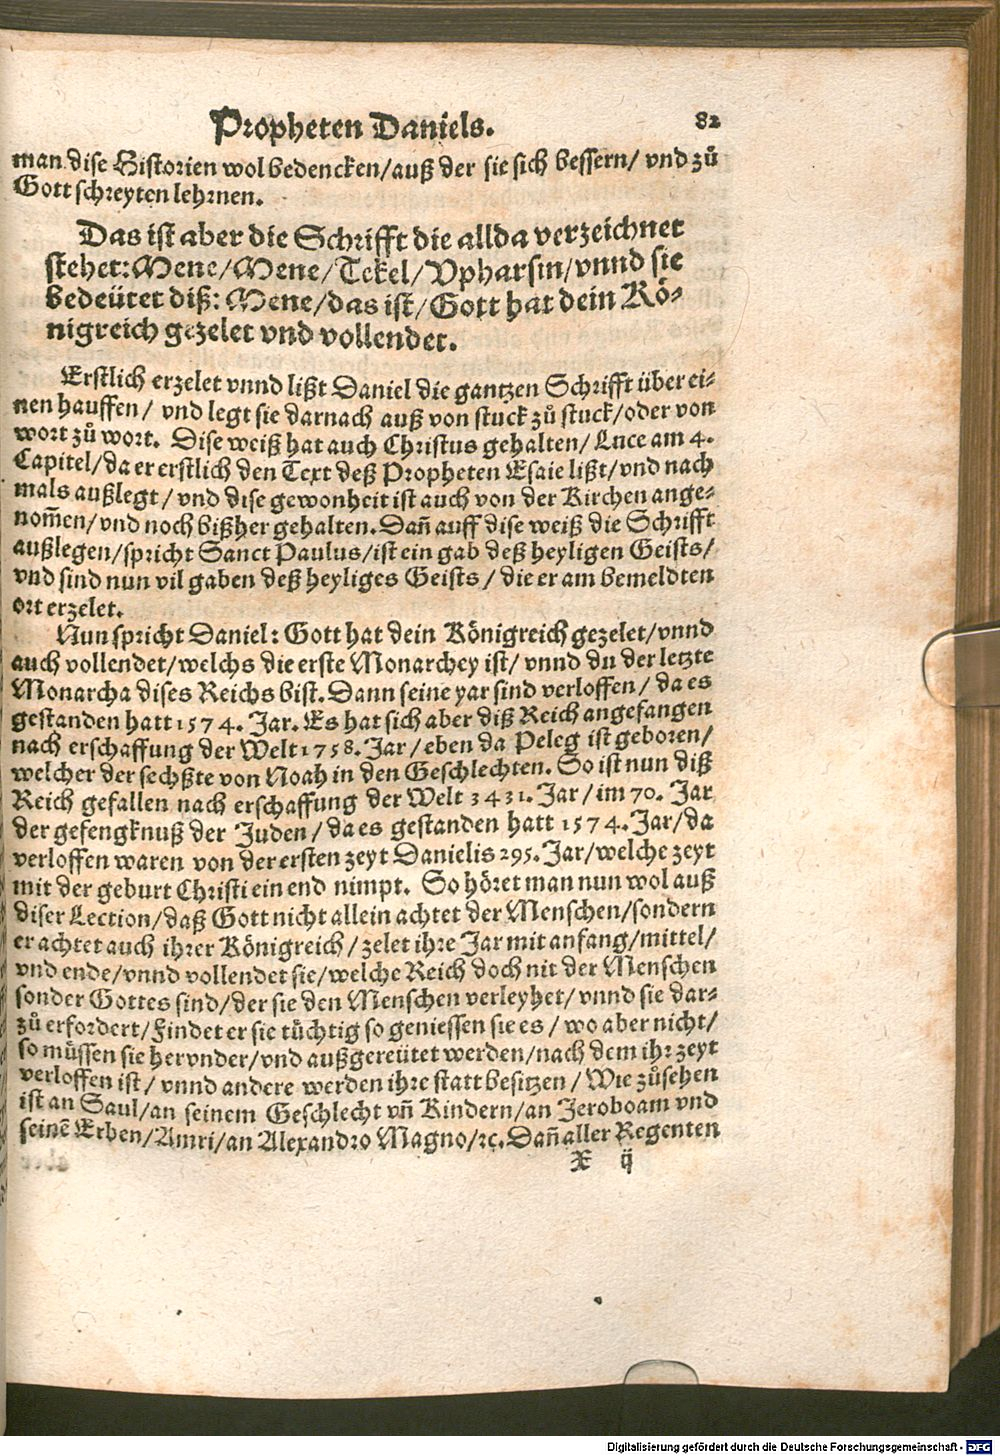 Propheten Daniels. 82
man dise Historien wol bedencken/auß der sie sich bessern/ vnd zů
Gott schreyten lehrnen.
Das ist aber die Schrifft die allda verzeichnet
stehet: Mene/Mene/Tekel/Vpharsin/vnnd sie
bedeütet diß: Mene/das ist/Gott hat dein Kö-
nigreich gezelet vnd vollendet.
Erstlich erzelet vnnd lißt Daniel die gantzen Schrifft über ei-
nen hauffen/ vnd legt sie darnach auß von stuck zů stuck/oder von
wort zů wort. Dise weiß hat auch Christus gehalten/ Luce am 4.
Capitel/da er erstlich den Text deß Propheten Esaie lißt/vnd nach
mals außlegt/ vnd dise gewonheit ist auch von der Kirchen ange-
nom̃en/vnd noch bißher gehalten. Dañ auff dise weiß die Schrifft
außlegen/spricht Sanct Paulus/ist ein gab deß heyligen Geists/
vnd sind nun vil gaben deß heyliges Geists/ die er am bemeldten
ort erzelet.
Nun spricht Daniel: Gott hat dein Königreich gezelet/vnnd
auch vollendet/welchs die erste Monarchey ist/ vnnd du der letzte
Monarcha dises Reichs bist. Dann seine yar sind verloffen/ da es
gestanden hatt 1574. Jar. Es hat sich aber diß Reich angefangen
nach erschaffung der Welt 1758. Jar/eben da Peleg ist geboren/
welcher der sechßte von Noah in den Geschlechten. So ist nun diß
Reich gefallen nach erschaffung der Welt 3431. Jar/im 70. Jar
der gefengknuß der Juden/da es gestanden hatt 1574. Jar/da
verloffen waren von der ersten zeyt Danielis 295. Jar/welche zeyt
mit der geburt Christi ein end nimpt. So höret man nun wol auß
diser Lection/daß Gott nicht allein achtet der Menschen/sondern
er achtet auch ihrer Königreich/ zelet ihre Jar mit anfang/mittel/
vnd ende/vnnd vollendet sie/welche Reich doch nit der Menschen
sonder Gottes sind/der sie den Menschen verleyhet/ vnnd sie dar-
zů erfordert/Findet er sie tüchtig so geniessen sie es/ wo aber nicht/
so müssen sie hervnder/vnd außgereütet werden/nach dem ihr zeyt
verloffen ist/ vnnd andere werden ihre statt besitzen/ Wie zůsehen
ist an Saul/an seinem Geschlecht vñ Kindern/an Jeroboam vnd
seinẽ Erben/Amri/an Alexandro Magno/ꝛc. Dañ aller Regenten
X ij
Digitalisierung gefördert durch die Deutsche Forschungsgemeinschaft - DFG